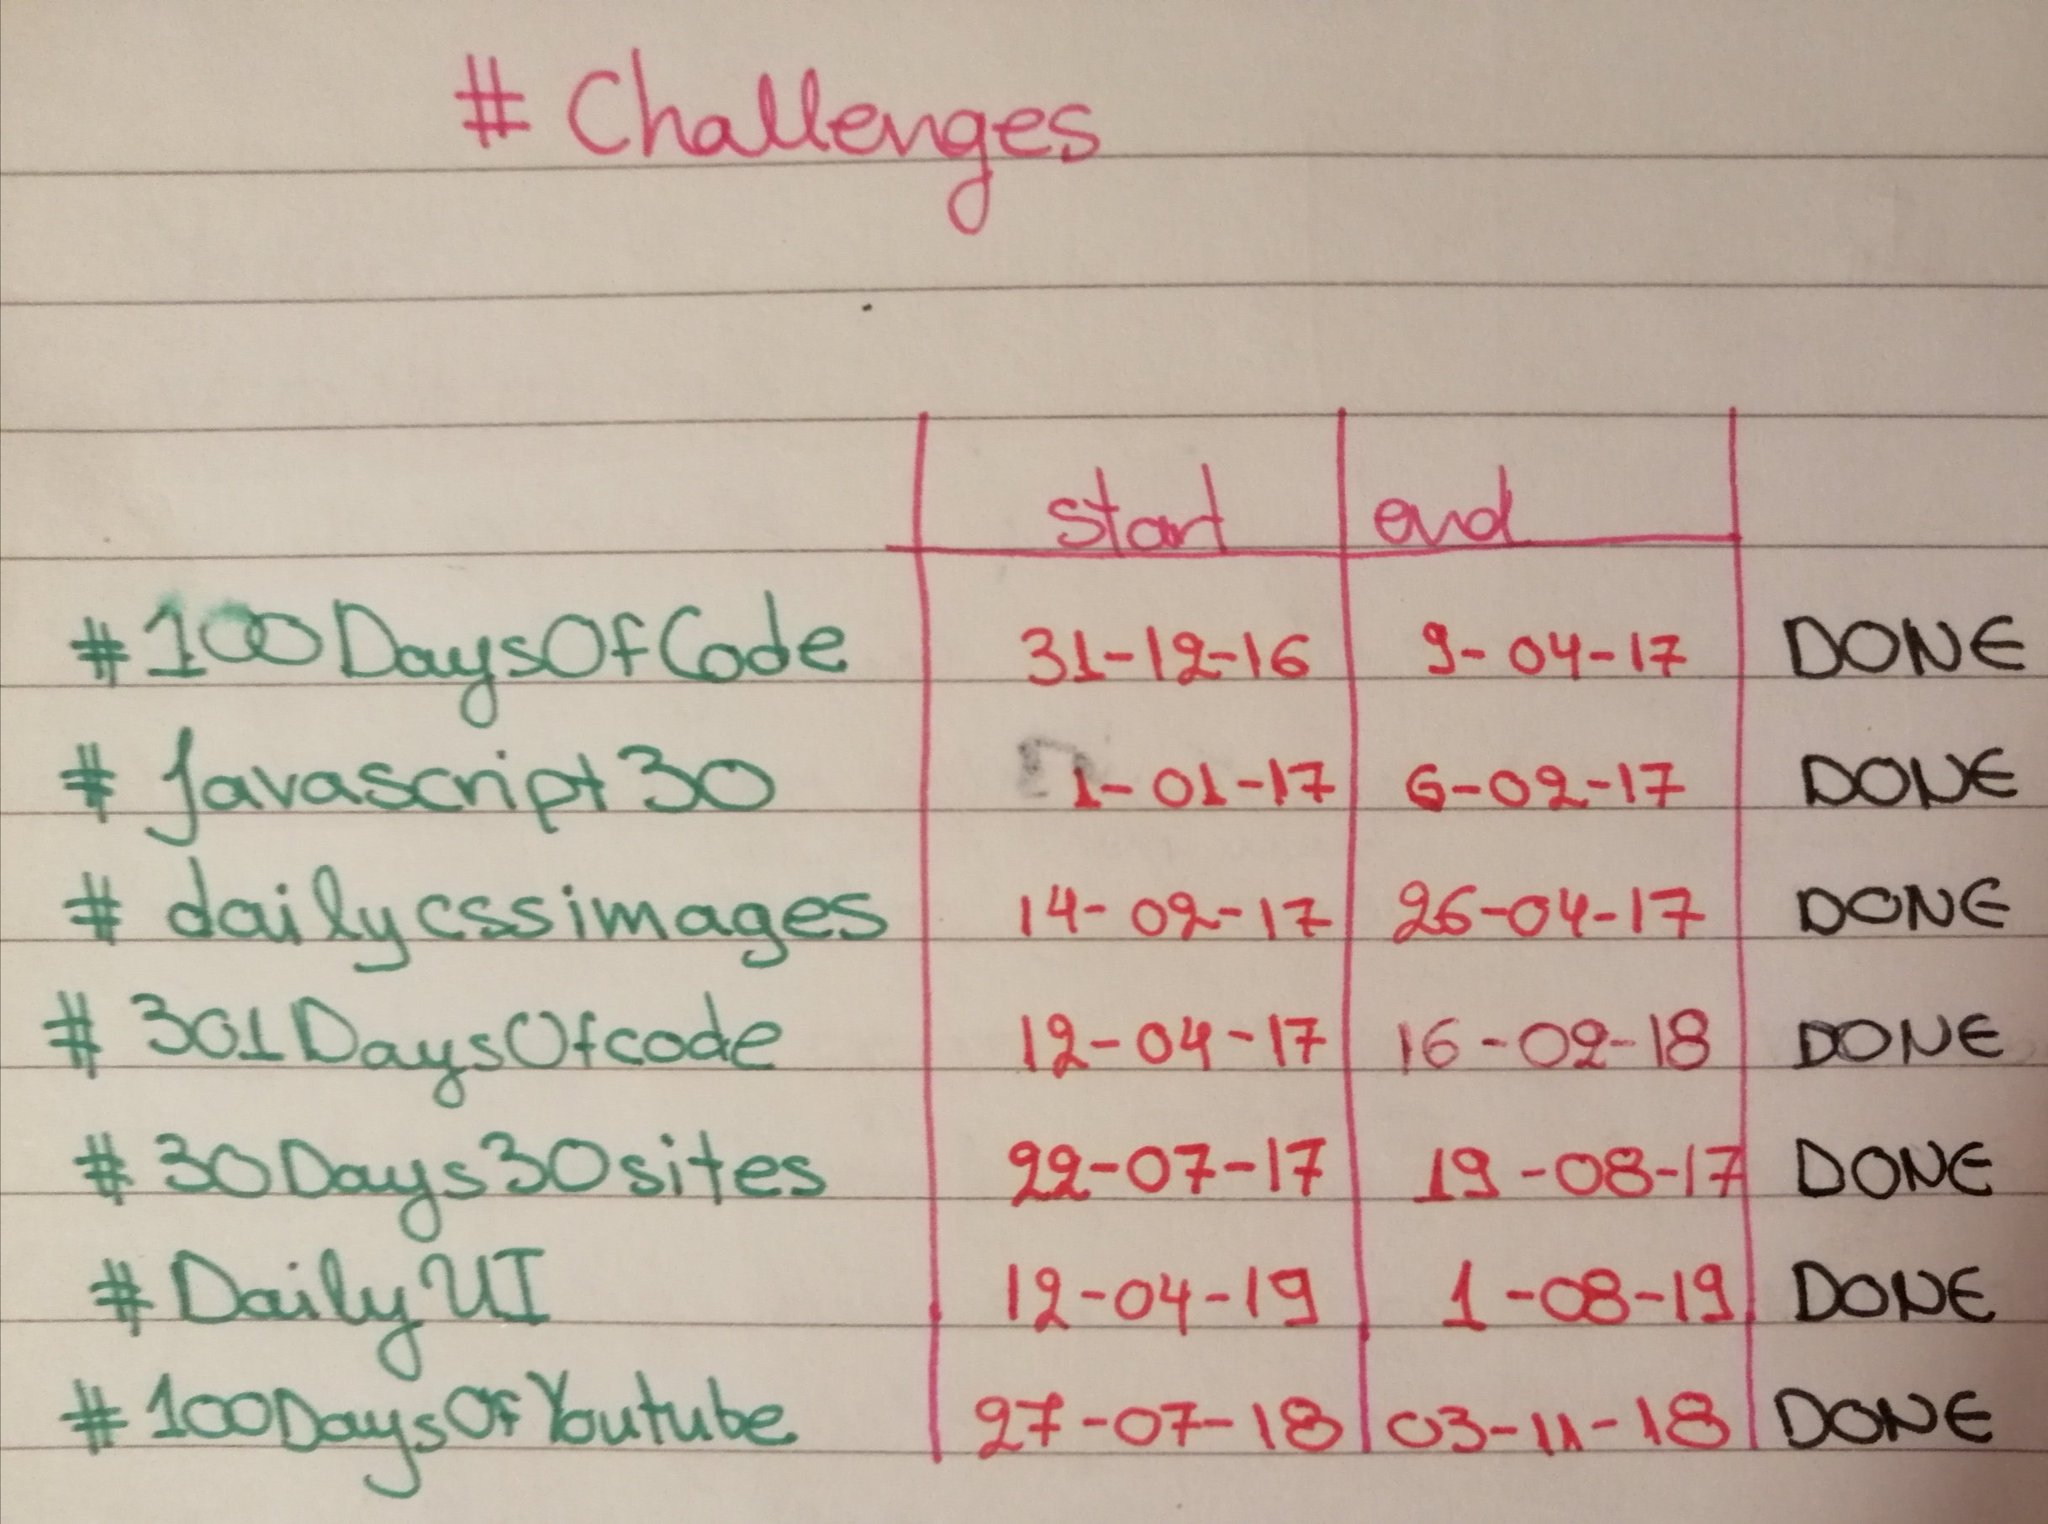 # Challenges
start end
#100DaysOfCode 31-12-16 9-04-17 DONE
# Javascript30 1-01-17 6-02-17 DONE
# dailycssimages 14-02-17 26-04-17 DONE
# 301DaysOfcode 12-04-17 16-02-18 DONE
# 30Days30sites 22-07-17 19-08-17 DONE
# DailyUI 12-04-19 1-08-19 DONE
#100DaysOfYoutube 27-07-18 03-11-18 DONE